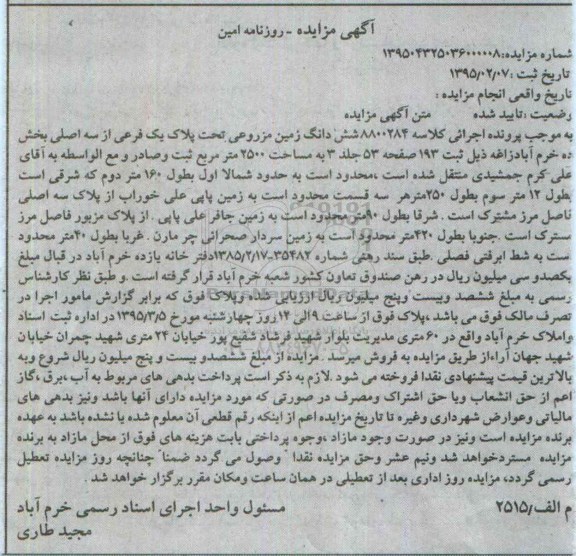 آگهی مزایده - روزنامه امین
شماره مزایده: ۱۳۹۵۰۴۳۲۵۰۳۶۰۰۰۰۰۸
تاریخ ثبت: ۱۳۹۵/۰۲/۰۷
تاریخ واقعی انجام مزایده:
وضعیت: تایید شده متن آگهی مزایده
به موجب پرونده اجرائی کلاسه ۸۸۰۰۲۸۴ شش دانگ زمین مزروعی تحت پلاک یک فرعی از سه اصلی بخش
ده خرم آبادزاغه ذیل ثبت ۱۹۳ صفحه ۵۳ جلد ۳ به مساحت ۲۵۰۰ متر مربع ثبت وصادر و مع الواسطه به آقای
علی کرم جمشیدی منتقل شده است ،محدود است به حدود شمالا اول بطول ۱۶۰ متر دوم که شرقی است
بطول ۱۲ متر سوم بطول ۲۵۰مترهر سه قسمت محدود است به زمین پاپی علی خوراب از پلاک سه اصلی
فاصل مرز مشترک است . شرقا بطول ۹۰متر محدود است به زمین جافر علی پاپی . از پلاک مزبور فاصل مرز
مشترک است .جنوبا بطول ۴۲۰متر محدود است به زمین سردار صحرائی چر مارن . غربا بطول ۴۰متر محدود
ست به شط ابرفتی فصلی .طبق سند رهنی شماره ۳۵۴۸۲-۱۳۸۵/۲/۱۷دفتر خانه یازده خرم آباد در قبال مبلغ
یکصدو سی میلیون ریال در رهن صندوق تعاون کشور شعبه خرم آباد قرار گرفته است .و طبق نظر کارشناس
رسمی به مبلغ ششصد وبیست وپنج میلیون ریال ارزیابی شده وپلاک فوق که برابر گزارش مامور اجرا در
تصرف مالک فوق می باشد ،پلاک فوق از ساعت ۹الی ۱۲روز چهارشنبه مورخ ۱۳۹۵/۳/۵ در اداره ثبت اسناد
واملاک خرم آباد واقع در ۶۰متری مدیریت بلوار شهید فرشاد شفیع پور خیابان ۲۴ متری شهید چمران خیابان
شهید جهان آراءاز طریق مزایده به فروش میرسد . مزایده از مبلغ ششصدو بیست و پنج میلیون ریال شروع وبه
بالاترین قیمت پیشنهادی نقدا فروخته می شود .لازم به ذکر است پرداخت بدهی های مربوط به آب ،برق ،گاز
اعم از حق انشعاب ویا حق اشتراک ومصرف در صورتی که مورد مزایده دارای آنها باشد ونیز بدهی های
مالیاتی وعوارض شهرداری وغیره تا تاریخ مزایده اعم از اینکه رقم قطعی آن معلوم شده یا نشده باشد به عهده
برنده مزایده است ونیز در صورت وجود مازاد ،وجوه پرداختی بابت هزینه های فوق از محل مازاد به برنده
مزایده مسترد خواهد شد ونیم عشر وحق مزایده نقدا وصول می گردد ضمنا چنانچه روز مزایده تعطیل
رسمی گردد، مزایده روز اداری بعد از تعطیلی در همان ساعت ومکان مقرر برگزار خواهد شد .
م الف/۲۵۱۵ مسئول واحد اجرای اسناد رسمی خرم آباد
مجید طاری